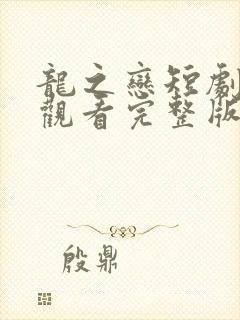 龍之戀短劇
觀看完整版
殷鼎